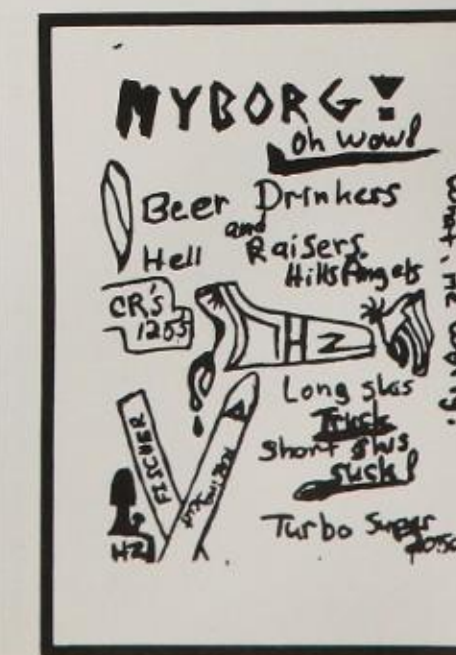 NYBORG!
Oh wow!
Beer Drinkers
and
Hell Raisers
Hills Angels
CR's
120s
HZ
Long skis
Truck
Short skis
suck!
FISCHER
HZ
Turbo Super
What, me worry?